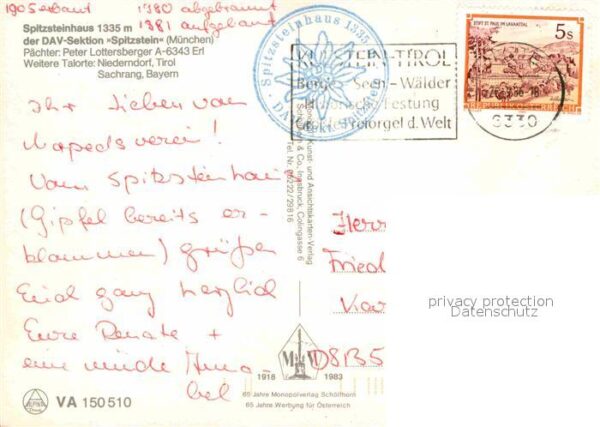 1905 erbaut 1980 abgebrannt
1981 aufgebaut
Spitzsteinhaus 1335 m
der DAV-Sektion «Spitzstein» (München)
Pächter: Peter Lottersberger A-6343 Erl
Weitere Talorte: Niederndorf, Tirol
Sachrang, Bayern
Spitzsteinhaus 1335
KUFSTEIN-TIROL
Berge-Seen-Wälder
Historische Festung
Größte Freiorgel d. Welt
STIFT ST. PAUL IM LAVANTTAL
5s
REPUBLIK ÖSTERREICH
6330
Ihr Lieben vom
Mopedsverein!
Vom Spitzsteinhaus
(Gipfel bereits er-
klommen) grüßen
Euch ganz herzlich
Eure Renate +
eine müde Anna-
bel
Kunst- und Ansichtskarten-Verlag
& Co., Innsbruck, Colingasse 6
Tel. Nr. 05222/29816
Herrn
Fried
D8135
privacy protection
Datenschutz
1918 1983
65 Jahre Monopolverlag Schöllhorn
65 Jahre Werbung für Österreich
VA 150510